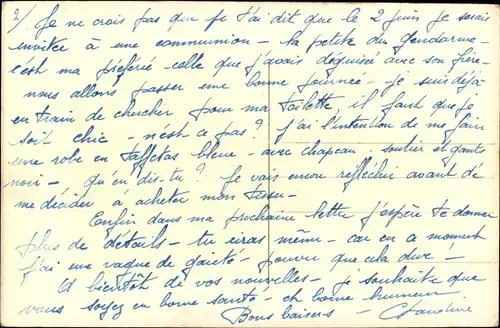 2/ Je ne crois pas que je t'ai dit que le 2 juin je serais
invitée à une communion - la petite du gendarme -
c'est ma préféré celle que j'avais déguisée avec son frère -
nous allons passer une bonne journée - je suis déjà
en train de chercher pour ma toilette, il faut que je
soit chic - n'est ce pas ? j'ai l'intention de me faire
une robe en taffetas bleue - avec chapeau, soulier et gants
noir - qu'en dis-tu ? Je vais encore réfléchir avant de
me décider à acheter mon tissu -
Enfin dans ma prochaine lettre j'espère te donner
plus de détails - tu riras même - car en a moment
j'ai une vague de gaieté - pourvu que cela dure !
A bientôt de vos nouvelles - je souhaite que
vous soyez en bonne santé - et bonne humeur
Bons baisers -